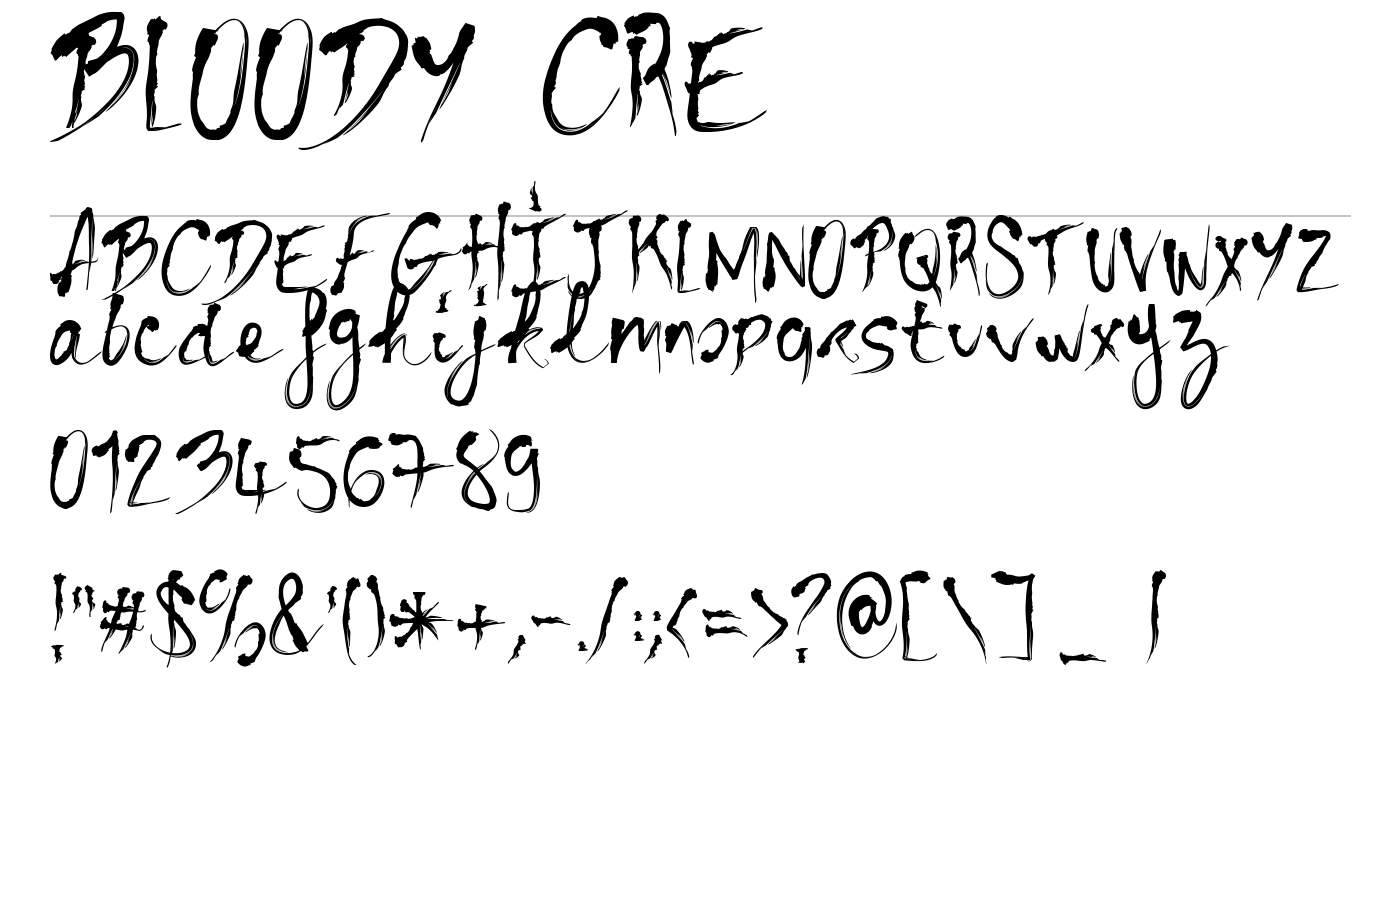 BLOODY CRE
ABCDEFGHIJKLMNOPQRSTUVWXYZ
abcdefghijklmnopqrstuvwxyz
0123456789
!"#$%&'()*+,-./:;<=>?@[\]_|